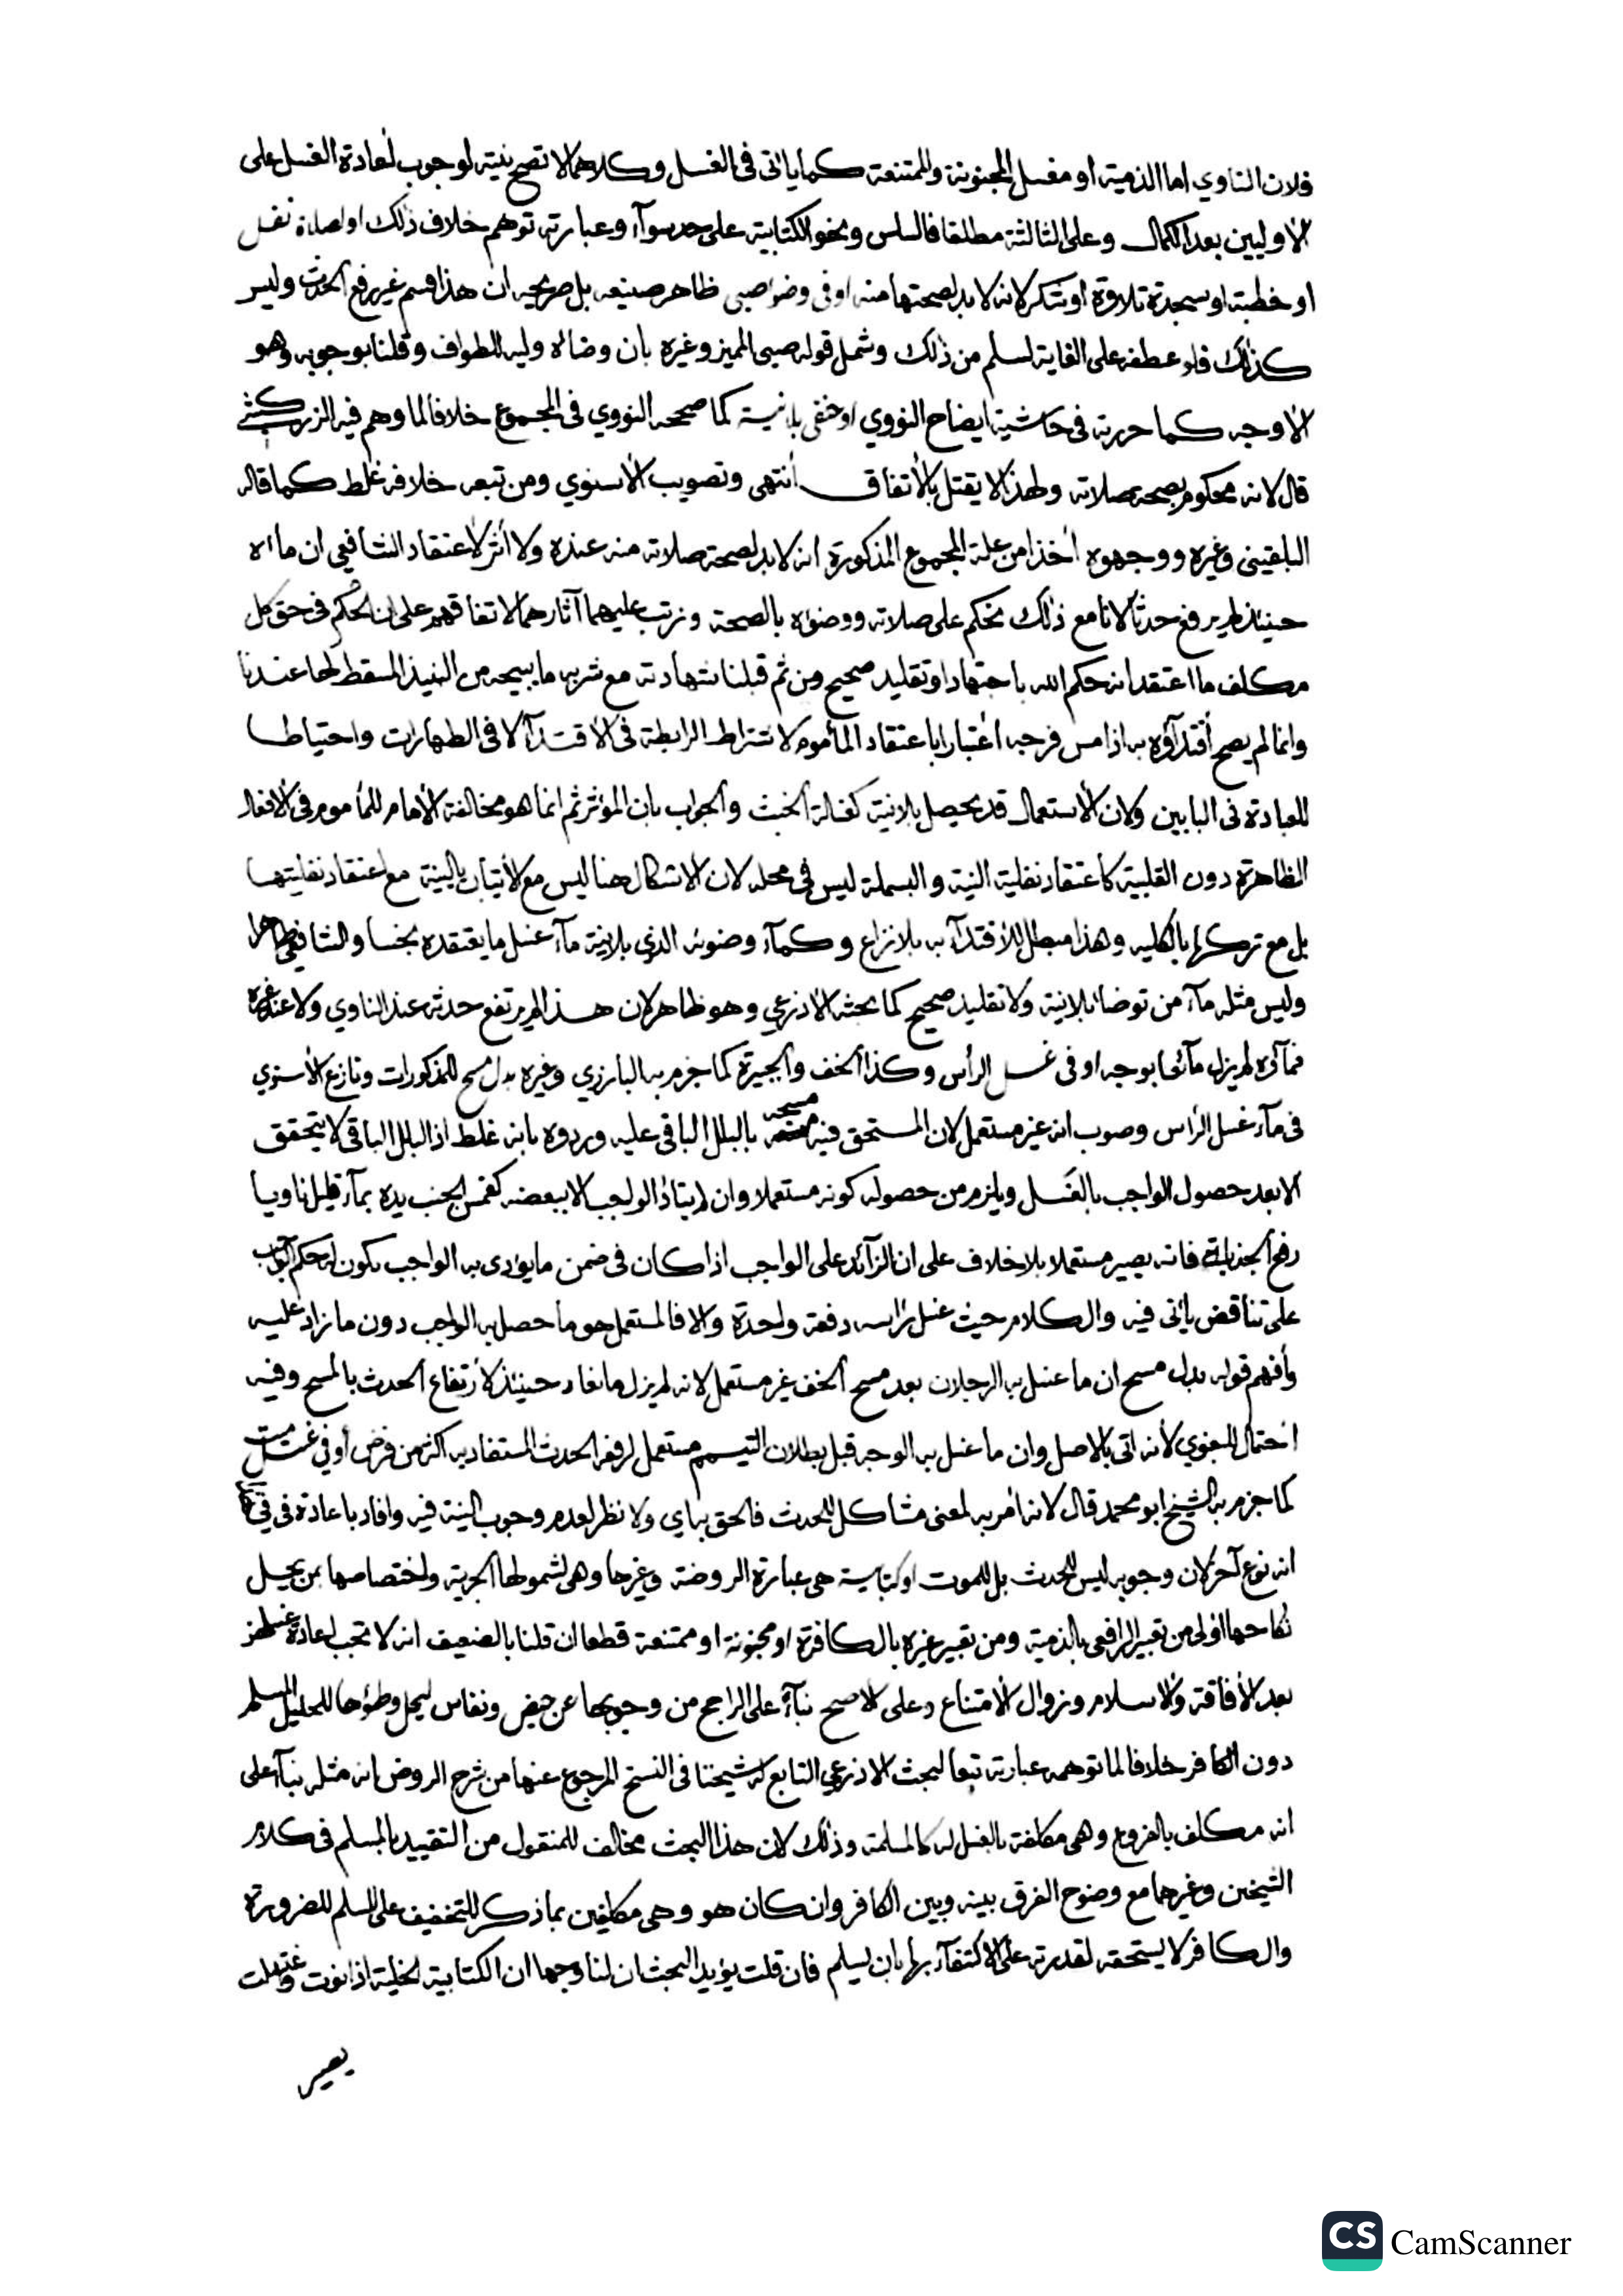 فلان الناوي اما الذمية او مغسل المجنونة والممتنعة كما ياتي في الغسل وكلاهما لا تصح نيته لوجوب اعادة الغسل على
الاوليين بعد الكمال وعلى الثالثة مطلقا فالسلس ونحو الكتابية على حد سوآء وعبارته توهم خلاف ذلك او لصلاة نفل
او خطبة او سجدة تلاوة او شكر لانه لا بد لصحتها منه او في وضوا صبي ظاهر صنيعه بل صريحه ان هذا قسم غير رفع الحدث وليس
كذلك فلو عطفه على الغاية لسلم من ذلك وشمل قوله صبي المميز وغيره بان وضاه وليه للطواف وقلنا بوجوبه وهو
الاوجه كما حررته في حاشية ايضاح النووي او حنفي بلا نية كما صححه النووي في المجموع خلافا لما وهم فيه الزركشي
قال لانه محكوم بصحة صلاته ولهذا لا يقتل بالاتفاق انتهى وتصويب الاسنوي ومن تبعه خلافه غلط كما قاله
البلقيني وغيره ووجهوه اخذا من علة المجموع المذكورة انه لا بد لصحة صلاته منه عنده ولا اثر لاعتقاد الشافعي ان ماءه
حينئذ لم يرفع حدثا لانا مع ذلك نحكم على صلاته ووضوئه بالصحة ونرتب عليهما آثارهما لاتفاقهم على ان الحكم في حق كل
مكلف ما اعتقد انه حكم الله باجتهاد او تقليد صحيح ومن ثم قبلنا شهادته مع شربه ما يبيحه من النبيذ المسقط لها عندنا
وانما لم يصح اقتدآؤه به اذا مس فرجه اعتبارا باعتقاد المأموم لاشتراط الرابطة في الاقتدآ لا في الطهارات واحتياطا
للعبادة في البابين ولان الاستعمال قد يحصل بلا نية كغسالة الخبث والجواب بان المؤثر ثم انما هو مخالفة الامام للمأموم في الافعال
الظاهرة دون القلبية كاعتقاد نفلية النية والبسملة ليس في محله لان الاشكال هنا ليس مع الاتيان بالنية مع اعتقاد نفليتها
بل مع تركها بالكلية وهذا مبطل للاقتدآء به بلا نزاع وكمآء وضوئه الذي بلا نية مآء غسل ما يعتقده نجسا والشافعي طاهرا
وليس مثله مآء من توضا بلا نية ولا تقليد صحيح كما بحثه الاذرعي وهو ظاهر لان هذا لم يرتفع حدثه عند الناوي ولا عند غيره
فمآؤه لم يزل مآنعا بوجه او في غسل الرأس وكذا الخف والجبيرة كما جزم به البارزي وغيره بدل مسح للمذكورات ونازع الاسنوي
في مآء غسل الرأس وصوب انه غير مستعمل لان المستحق فيه مسحه بالبلل الباقي عليه وردوه بانه غلط اذ البلل الباقي لا يتحقق
الا بعد حصول الواجب بالغسل ويلزم من حصوله كونه مستعملا وان لم يتاد الواجب الا ببعضه كغمس الجنب يده بمآء قليل ناويا
رفع الجنابة فانه يصير مستعملا بلا خلاف على ان الزآئد على الواجب اذا كان في ضمن ما يؤدى به الواجب يكون له حكم الواجب
على تناقض ياتي فيه والكلام حيث غسل رأسه دفعة واحدة والا فالمستعمل هو ما حصل به الواجب دون ما زاد عليه
وأفهم قوله بدل مسح ان ما غسل به الرجلان بعد مسح الخف غير مستعمل لانه لم يزل مانعا حينئذ لارتفاع الحدث بالمسح وفيه
احتمال للبغوي لانه اتى بالاصل وان ما غسل به الوجه قبل بطلان التيمم مستعمل لرفعه الحدث المستفاد به اكثر من فرض أو في غسل ميت
كما جزم به الشيخ ابو محمد قال لانه أمر به لمعنى مشاكل للحدث فالحق به اي ولا نظر لعدم وجوب النية فيه وافاد باعادة في فيه
انه نوع آخر لان وجوبه ليس للحدث بل للموت او كتابية هي عبارة الروضة وغيرها وهي لشمولها الحربية واختصاصها بمن يحل
نكاحها اولى من تعبير الرافعي بالذمية ومن تعبير غيره بالكافرة او مجنونة او ممتنعة قطعا ان قلنا بالضعيف انه لا تجب اعادة غسلهن
بعد الافاقة والاسلام وزوال الامتناع وعلى الاصح بنآء على الراجح من وجوبها عن حيض ونفاس ليحل وطؤها للحليل المسلم
دون الكافر خلافا لما توهمه عبارته تبعا لبحث الاذرعي التابع له شيخنا في النسخ المرجوع عنها من شرح الروض انه مثله بنآء على
انه مكلف بالفروع وهي مكلفة بالغسل له كالمسلمة وذلك لان هذا البحث مخالف للمنقول من التقييد بالمسلم في كلام
الشيخين وغيرهما مع وضوح الفرق بينه وبين الكافر وان كان هو وهي مكلفين بما ذكر للتخفيف على المسلم للضرورة
والكافر لا يستحقه لقدرته على الاكتفآء بها بان يسلم فان قلت يؤيد البحث ان لنا وجها ان الكتابية الخلية اذا نوت وغسلت
يصير
CS CamScanner